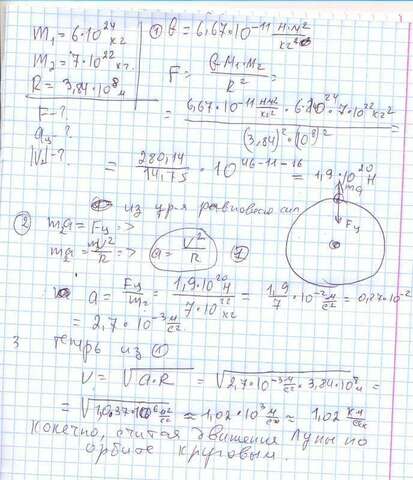 m₁ = 6·10²⁴ кг
m₂ = 7·10²² кг.
R = 3,84·10⁸ м
F-?
aц-?
|V|-?
① G = 6,67·10⁻¹¹ Н·м²/кг²
F = G·M₁·M₂/R² =
= 6,67·10⁻¹¹ Н·м²/кг² · 6·10²⁴ · 7·10²² кг²/(3,84)²·(10⁸)² =
= 280,14/14,75 · 10⁴⁶⁻¹¹⁻¹⁶ = 1,9·10²⁰ Н
из ур-я равновесия сил
ma
Fц
② m₂a = Fц =>
m₂a = mV²/R => a = V²/R
a = Fц/m₂ = 1,9·10²⁰ Н/7·10²² кг = 1,9/7 · 10⁻² м/с² = 0,27·10⁻²
= 2,7·10⁻³ м/с²
3 теперь из ①
V = √a·R = √2,7·10⁻³ м/с² · 3,84·10⁸ м =
= √1,037·10⁶ м²/с² ≈ 1,02·10³ м/сек ≈ 1,02 км/сек
конечно, считая движения Луны по
орбите круговым.